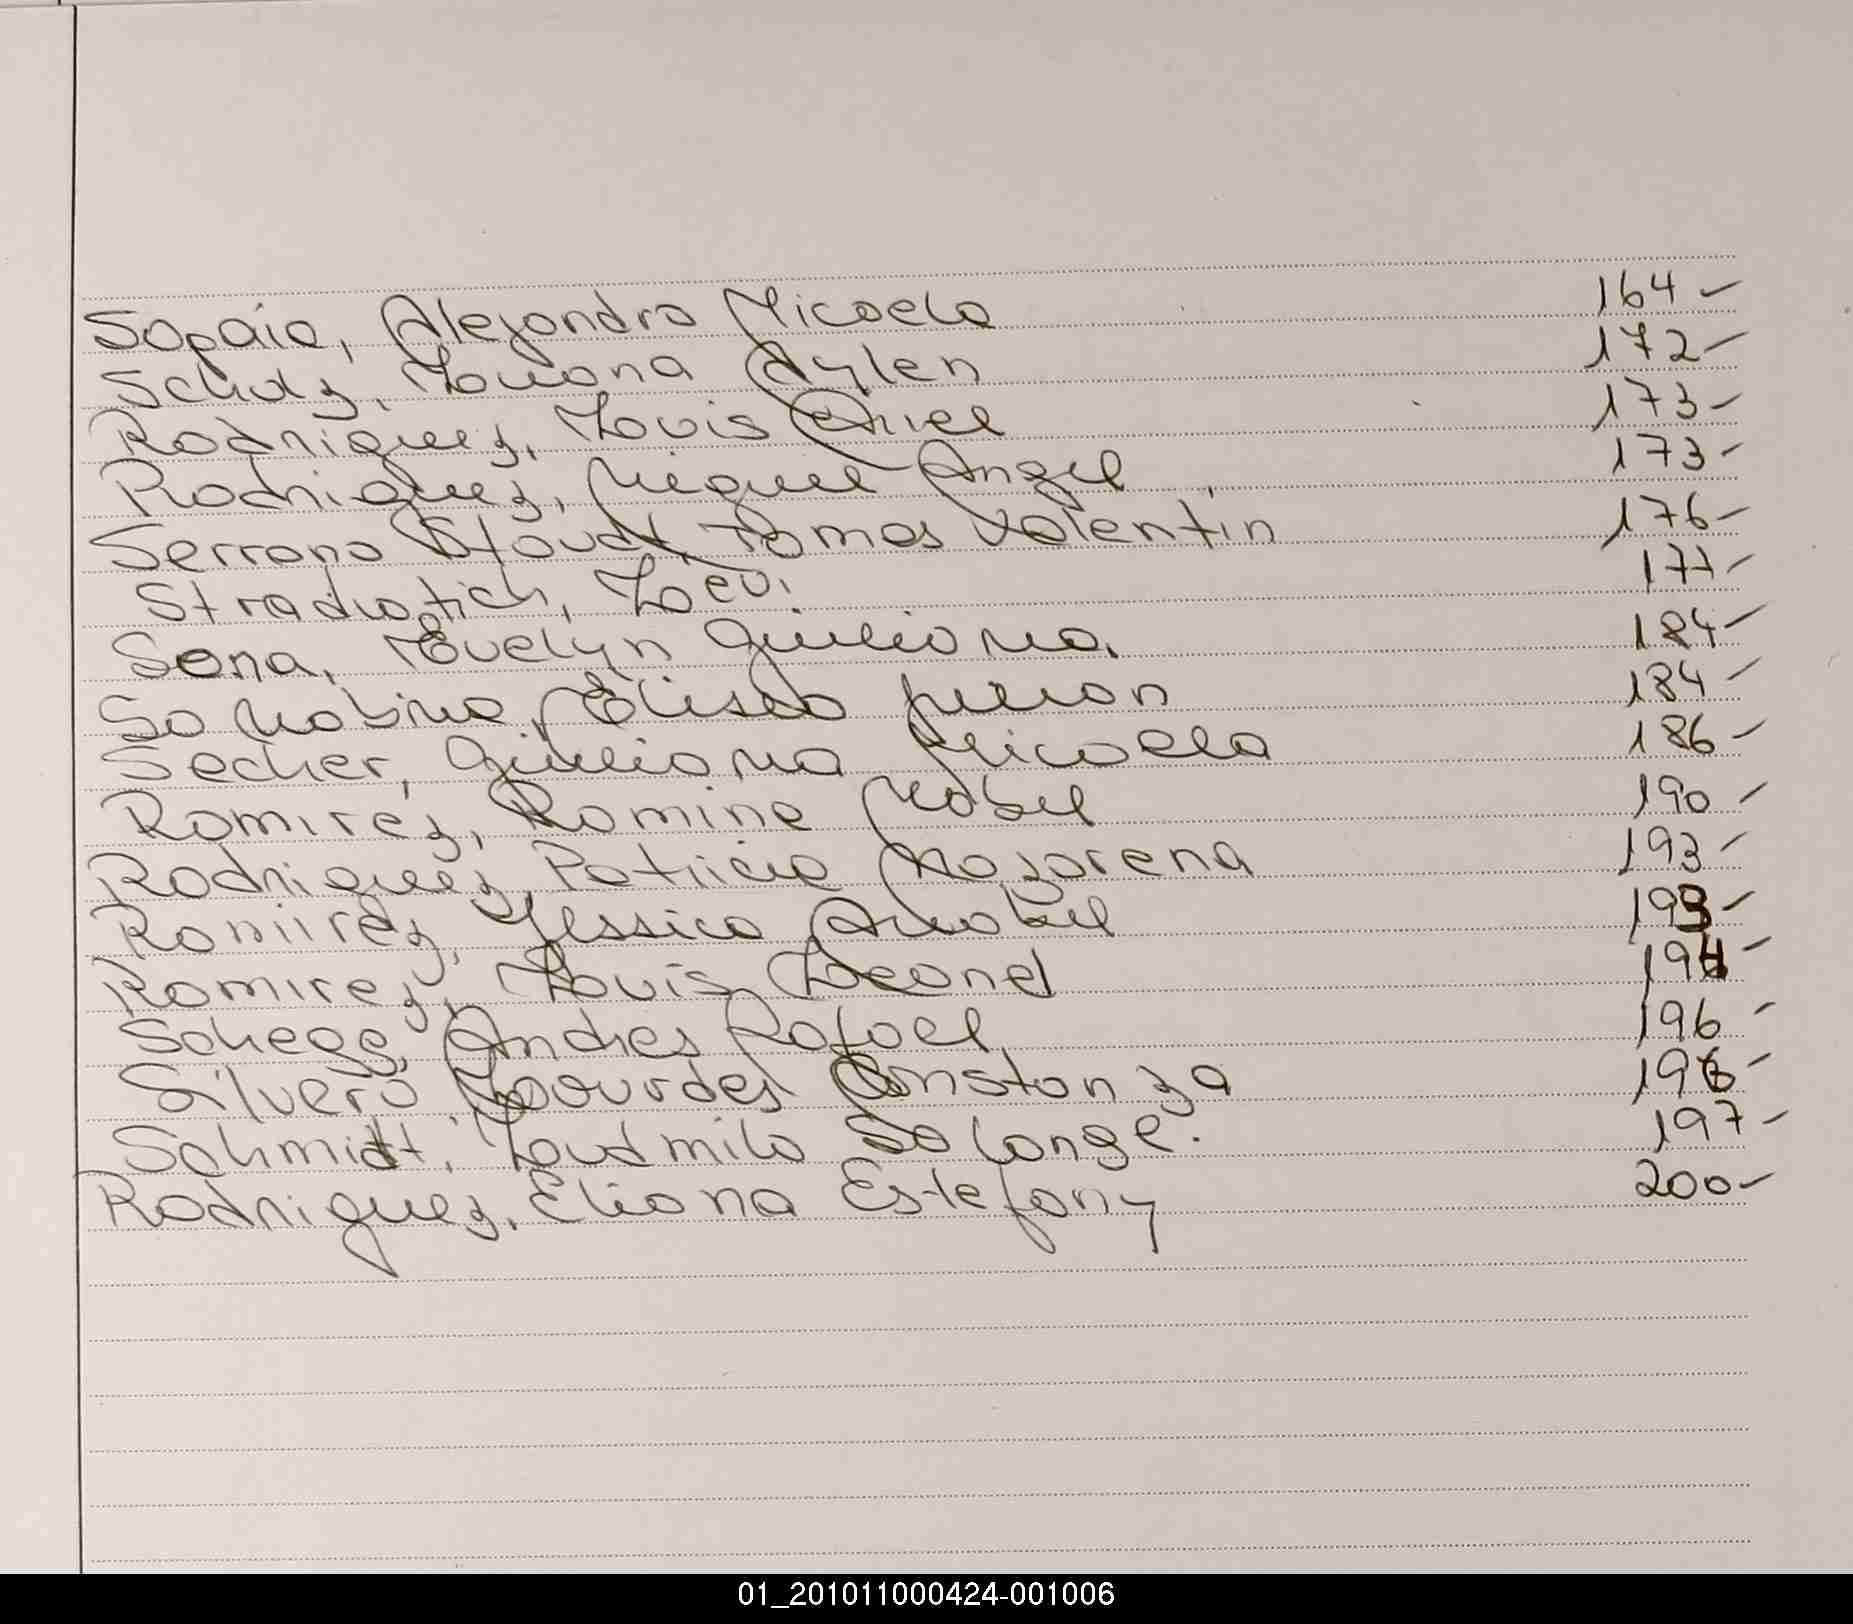 Sapaia, Alejandra Micaela 164
Schulz, Luciana Aylen 172
Rodriguez, Luis Ariel 173
Rodriguez, Miguel Angel 173
Serrano Staudt Tomas Valentin 176
Stradiotich, 177
Sena, Evelyn Giuliana. 184
Eliseo Julian 184
Secher, Giuliana Micaela 186
Ramirez, Romina Mabel 190
Rodriguez, Patricia Nazarena 193
Ramirez, Yessica Anabel 193
Ramirez, Luis Leonel 194
Andres Rafael 196
Silvero Lourdes Constanza 196
Schmidt, Ludmila Solange. 197
Rodriguez, Eliana Estefany 200
01_201011000424-001006